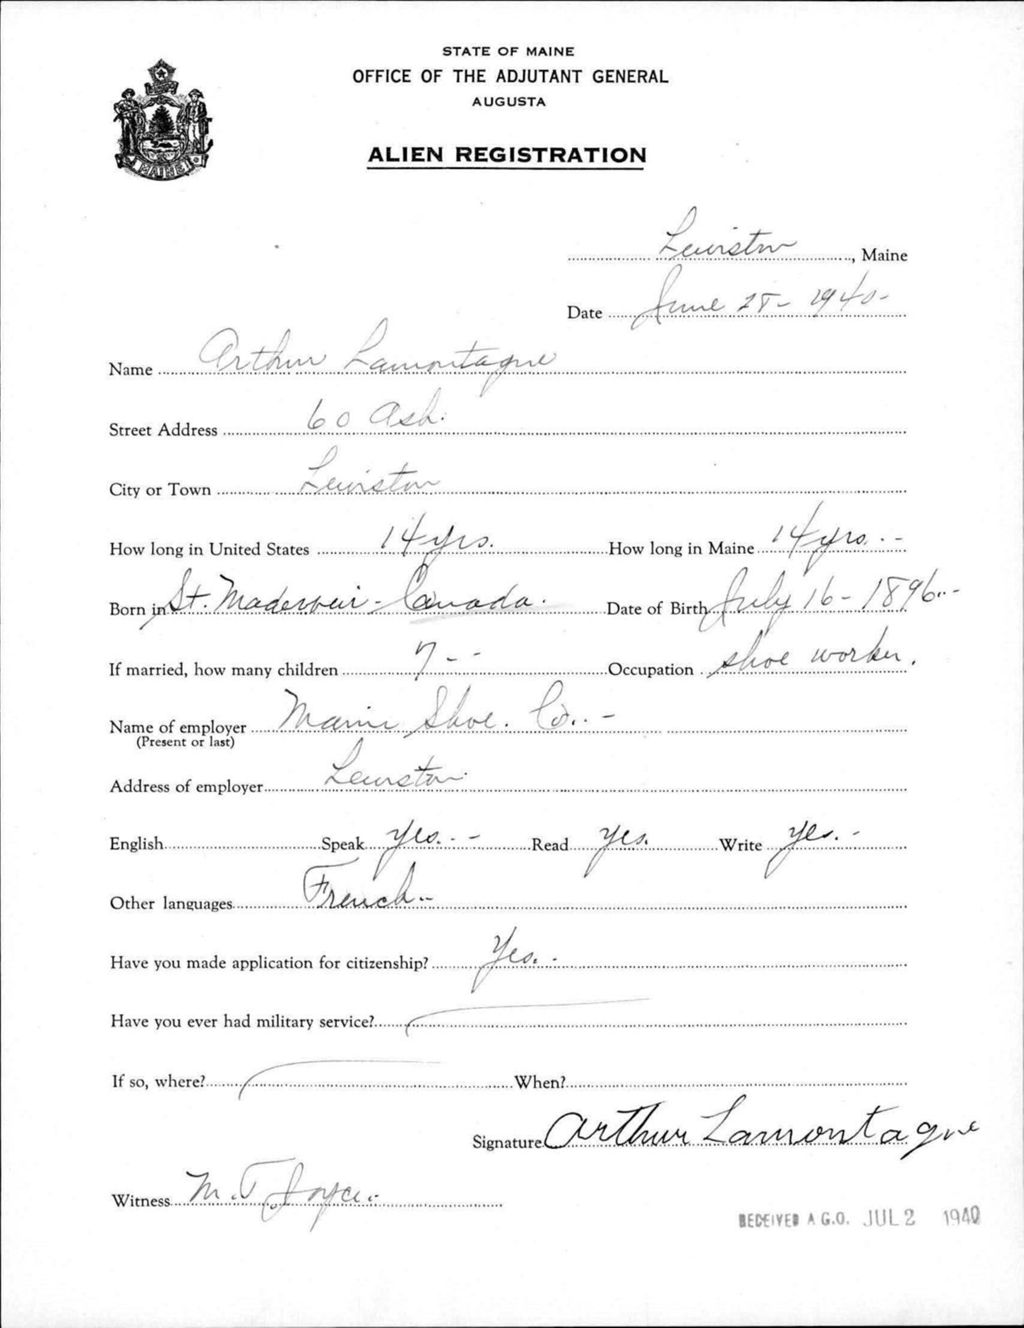 STATE OF MAINE
OFFICE OF THE ADJUTANT GENERAL
AUGUSTA
ALIEN REGISTRATION
MAINE
Lewiston, Maine
Date June 28 - 1940 -
Name Arthur Lamontagne
Street Address 60 Ash.
City or Town Lewiston
How long in United States 14 yrs. How long in Maine 14 yrs. -
Born in St. - Canada. Date of Birth July 16 - 1896. -
If married, how many children 7 - - Occupation shoe worker.
Name of employer Maine Shoe. Co. -
(Present or last)
Address of employer Lewiston.
English Speak Yes. - Read Yes. Write Yes. -
Other languages French -
Have you made application for citizenship? Yes. -
Have you ever had military service?
If so, where? When?
Signature Arthur Lamontagne
Witness M. T. Joyce.
RECEIVED A.G.O. JUL 2 1940